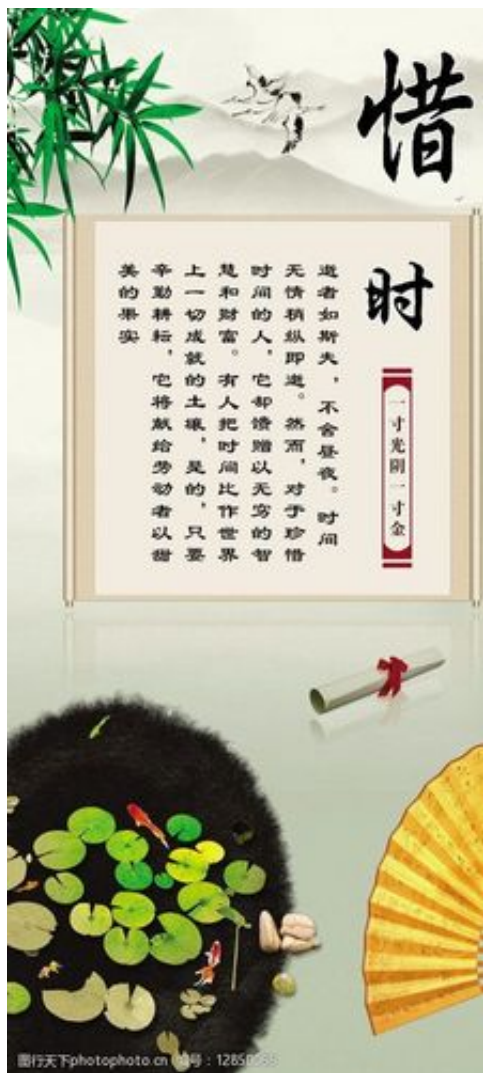 惜
时
一寸光阴一寸金
逝者如斯夫，不舍昼夜。时间
无情稍纵即逝。然而，对于珍惜
时间的人，它却馈赠以无穷的智
慧和财富。有人把时间比作世界
上一切成就的土壤，是的，只要
辛勤耕耘，它将献给劳动者以甜
美的果实
图行天下photophoto.cn 编号：